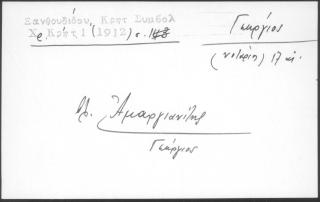 Ξανθουδίδου, Κρητ Συμβολ
Χρ. Κρήτ 1 (1912) σ.
Γεώργιος
(νοτάριος) 17 αι.
βλ. Ἀμαργιανίτης
Γεώργιος